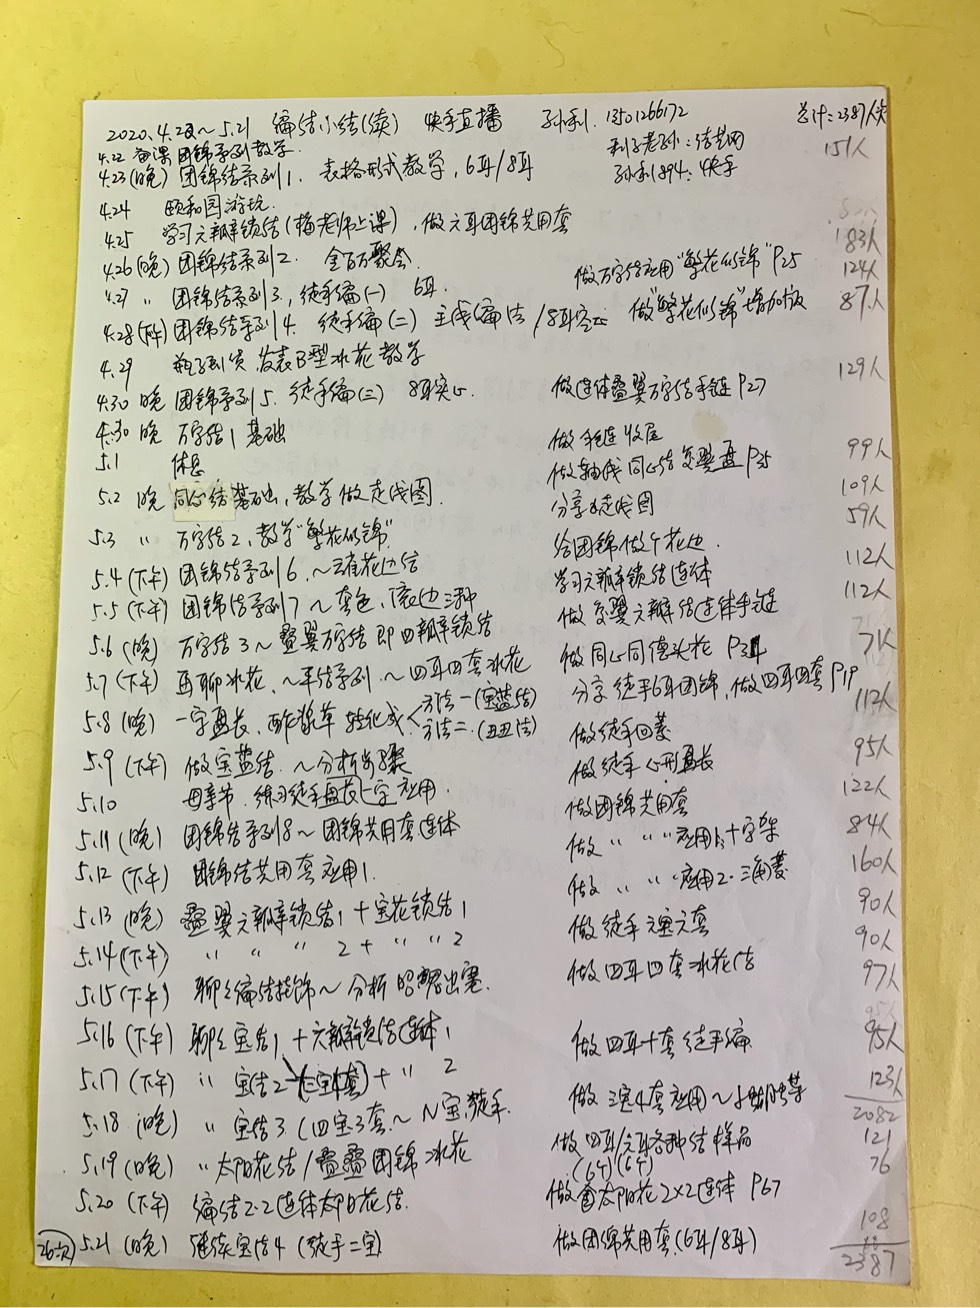 2020.4.22～5.21 编结小结(续) 快手直播 孙利.13501266172 总计=2387人次
4.22 备课 团锦系列教学. 利子老孙:结艺网 151人
4.23(晚) 团锦结系列1. 表格形式教学，6耳/8耳 孙利1894:快手
4.24 颐和园游玩.
4.25 学习六瓣锁结(梅老师上课)，做六耳团锦共用套
4.26(晚) 团锦结系列2. 金百万聚会. 做万字结应用"繁花似锦"P25 183人
4.27 〃 团锦结系列3，徒手编(一) 6耳. 124人
4.28(下午) 团锦结系列4. 徒手编(二) 主线编法/8耳空心 做"繁花似锦"增加版 87人
4.29 发表B型冰花教学
4.30 晚 团锦系列5. 徒手编(三) 8耳实心. 做连体叠翼万字结手链P27 129人
4.30 晚 万字结1 基础 做手链收尾
5.1 休息 做轴线同心结 P35 99人
5.2 晚 同心结基础，教学做走线图. 分享走线图 109人
5.3 〃 万字结2，教学"繁花似锦" 给团锦做个花边. 59人
5.4(下午) 团锦结系列6.～花边结 学习六瓣锁结连体 112人
5.5(下午) 团锦结系列7～套色、滚边三种 做 六瓣结连体手链 112人
5.6(晚) 万字结3～叠翼万字结即四瓣锁结 做同心同德头花 71人
5.7(下午) 再聊冰花、～平结系列～四耳四套冰花 分享徒手6耳团锦，做四耳四套P19 112人
5.8(晚) 一字盘长、酢浆草 转化成 方法一(宝蓝结) 方法二.(丑丑法) 做徒手回菱
5.9(下午) 做宝蓝结.～分析步骤 做徒手心形盘长 95人
5.10 母亲节. 练习徒手盘长一字应用. 做团锦共用套 122人
5.11(晚) 团锦结系列8～团锦共用套连体 做〃〃〃应用1、十字架 84人
5.12(下午) 团锦结共用套应用1. 做〃〃〃应用2.三角菱 160人
5.13(晚) 叠翼六瓣锁结1＋宝花锁结1 做徒手六宝六套 90人
5.14(下午) 〃〃〃 2＋〃〃2 90人
5.15(下午) 聊之编结挂饰～分析昭君出塞. 做四耳四套冰花结 97人
5.16(下午) 聊之宝结1＋六瓣锁结连体1 做四耳十套徒手编 95人
5.17(下午) 〃 宝结2 ＋〃 2 123人
5.18(晚) 〃 宝结3(四宝3套～N宝,徒手. 做三宝4套应用～ 2082
5.19(晚) 〃太阳花结/叠叠团锦冰花 做四耳/六耳各种结样品 (6个)(6个) 121 76
5.20(下午) 编结2.2连体太阳花结. 做 太阳花2×2连体 P67
26次 5.21(晚) 继续宝结4(徒手二宝) 做团锦共用套(6耳/8耳) 108
2387